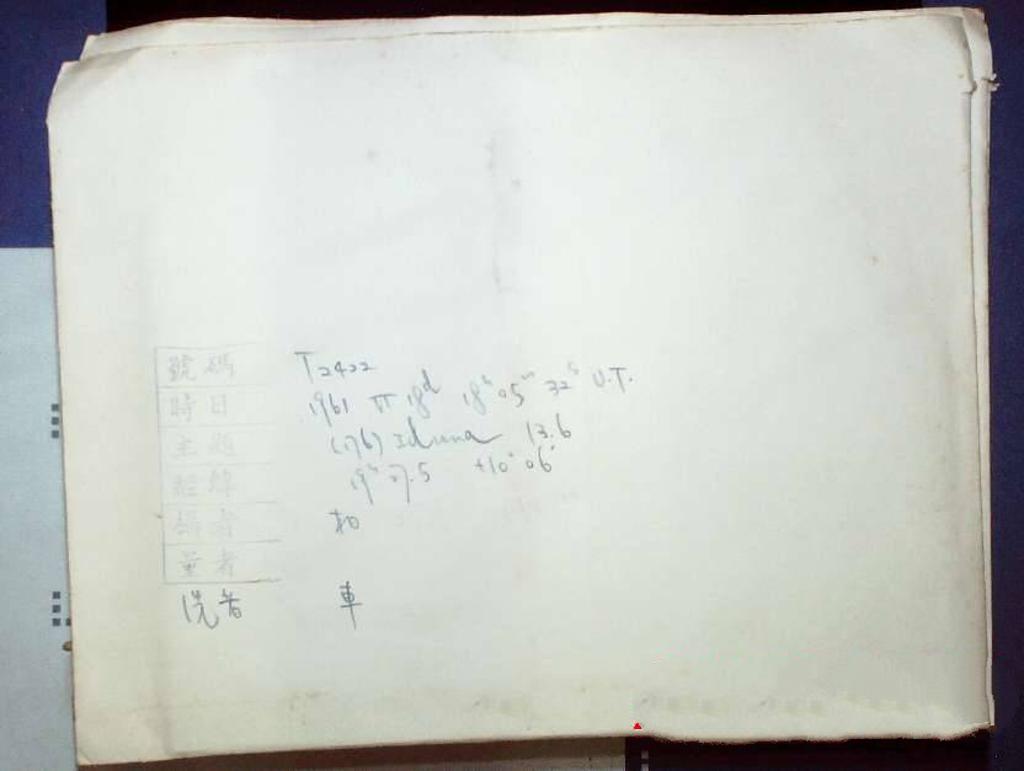 號碼 T2422
時日 1961 VI 18d 18h 05m 32s U.T.
主題 (176) Iduna 13.6
經緯 19h 27.5 +10° 06'
攝者
量者
洗者 車